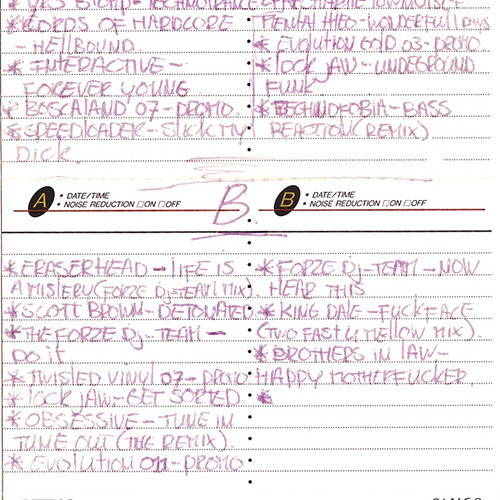 LORDS OF HARDCORE
- HELLBOUND.
* INTERACTIVE -
FOREVER YOUNG
* BOSCALAND '07 - PROMO.
* SPEEDLOADER - SUCK MY
DICK
MENTAL THEO - WONDERFULL DAYS
* EVOLUTION GOLD 03 - PROMO.
* LOCK JAW - UNDEGROUND
FUNK
* TECHNOFOBIA - BASS
REACTION (REMIX)
A • DATE/TIME
• NOISE REDUCTION □ON □OFF
B
B • DATE/TIME
• NOISE REDUCTION □ON □OFF
* ERASERHEAD - LIFE IS
A MISTERY (FORZE DJ-TEAM MIX).
* SCOTT BROWN - DETONATED
* THE FORZE DJ-TEAM -
DO IT
* TWISTED VINYL 07 - PROMO
* LOCK JAW - GET SORTED
* OBSESSIVE - TUNE IN
TUNE OUT (THE REMIX).
* EVOLUTION 011 - PROMO
* FORZE DJ-TEAM - NOW
HEAR THIS
* KING DALE - FUCKFACE
(TWO FAST 4 MELLOW MIX).
* BROTHERS IN LAW -
HAPPY MOTHERFUCKER
*